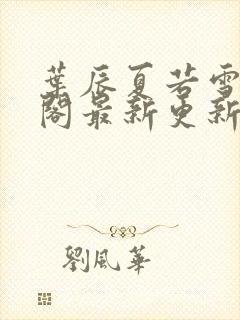 葉辰夏若雪
閣最新更新
劉風華